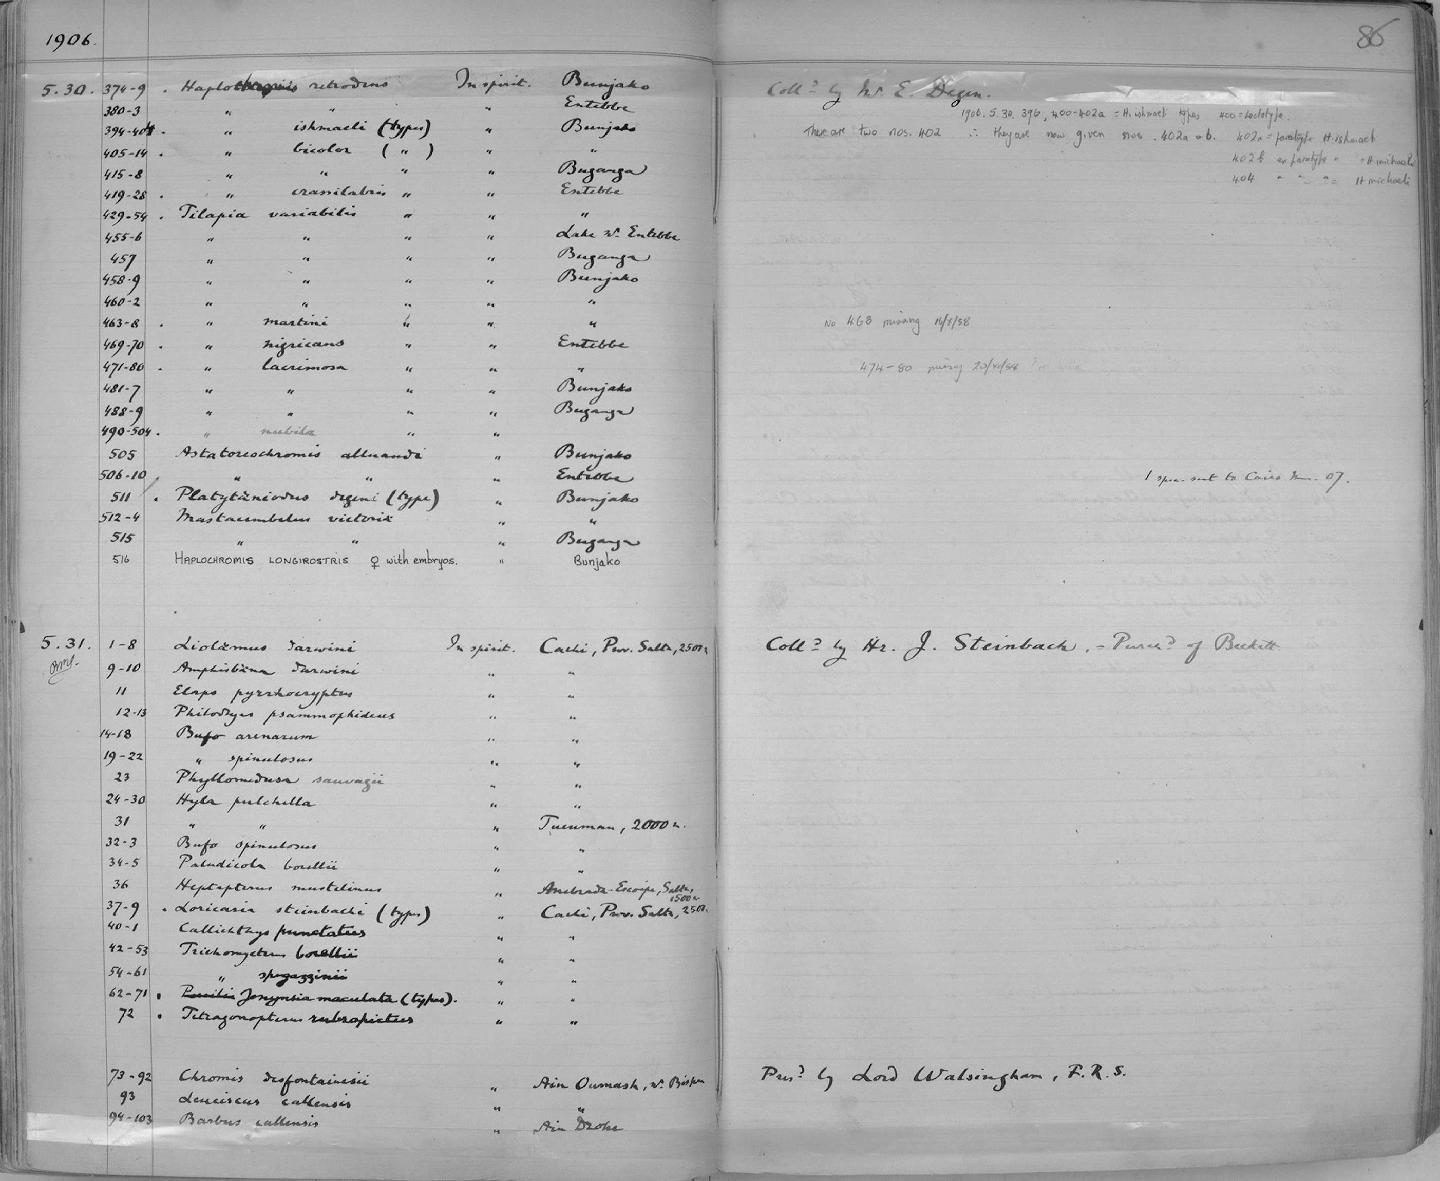 1906.
86
5.30. 374-9 . Haplochromis retrodens In spirit. Bunjako Coll.d by Mr E. Degen.
380-3 " " " Entebbe 1906. 5. 30. 396, 400-402a = H. ishmaeli types 400 = lectotype.
394-404 . " ishmaeli (types) " Bunjako There are two nos. 402 ∴ they are now given nos. 402a & b. 402a = paratype H. ishmaeli
405-14 . " bicolor ( " ) " " 402b ex paratype " = H. michaeli
415-8 " " " " Buganga 404 " " " = H. michaeli
419-28 . " crassilabris " " Entebbe
429-54 . Tilapia variabilis " " "
455-6 " " " " Lake nr. Entebbe
457 " " " " Buganga
458-9 " " " " Bunjako
460-2 " " " " "
463-8 . " martini " " " No 468 missing
469-70 . " nigricans " " Entebbe
471-80 . " lacrimosa " " " 474-80 missing
481-7 " " " " Bunjako
488-9 " " " " Buganga
490-504 . " nubila " "
505 Astatoreochromis alluaudi " Bunjako
506-10 " " " Entebbe 1 spec. sent to Cairo Mus. 07.
511 . Platytæniodus degeni (type) " Bunjako
512-4 Mastacembelus victoriæ " "
515 " " " Buganga
516 HAPLOCHROMIS LONGIROSTRIS ♀ with embryos. " Bunjako
5.31. 1-8 Liolæmus darwini In spirit. Cachi, Prov. Salta, 2500 m Coll.d by Hr. J. Steinbach. - Purch.d of Beckett
9-10 Amphisbæna darwini " "
11 Elaps pyrrhocryptus " "
12-13 Philodryas psammophideus " "
14-18 Bufo arenarum " "
19-22 " spinulosus " "
23 Phyllomedusa sauvagii " "
24-30 Hyla pulchella " "
31 " " " Tucuman, 2000 m.
32-3 Bufo spinulosus " "
34-5 Paludicola borellii " "
36 Heptapterus mustelinus " Escoipe, Salta, 1500 m
37-9 . Loricaria steinbachi (types) " Cachi, Prov. Salta, 2500
40-1 Callichthys punctatus " "
42-53 Trichomycterus borellii " "
54-61 " spegazzinii " "
62-71 . Jenynsia maculata (types). " "
72 . Tetragonopterus rubropictus " "
73-92 Chromis desfontainesii " Ain Oumash, nr. Biskra Pres.d by Lord Walsingham, F.R.S.
93 Leuciscus callensis " "
94-103 Barbus callensis " Ain